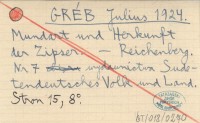 GRÉB Julius 1924.
Mundart und Herkunft
der Zipser. — Reichenberg.
Nr 7 wydawnictwa Sude-
tendeutsches Volk und Land.
Stron 15, 8°.